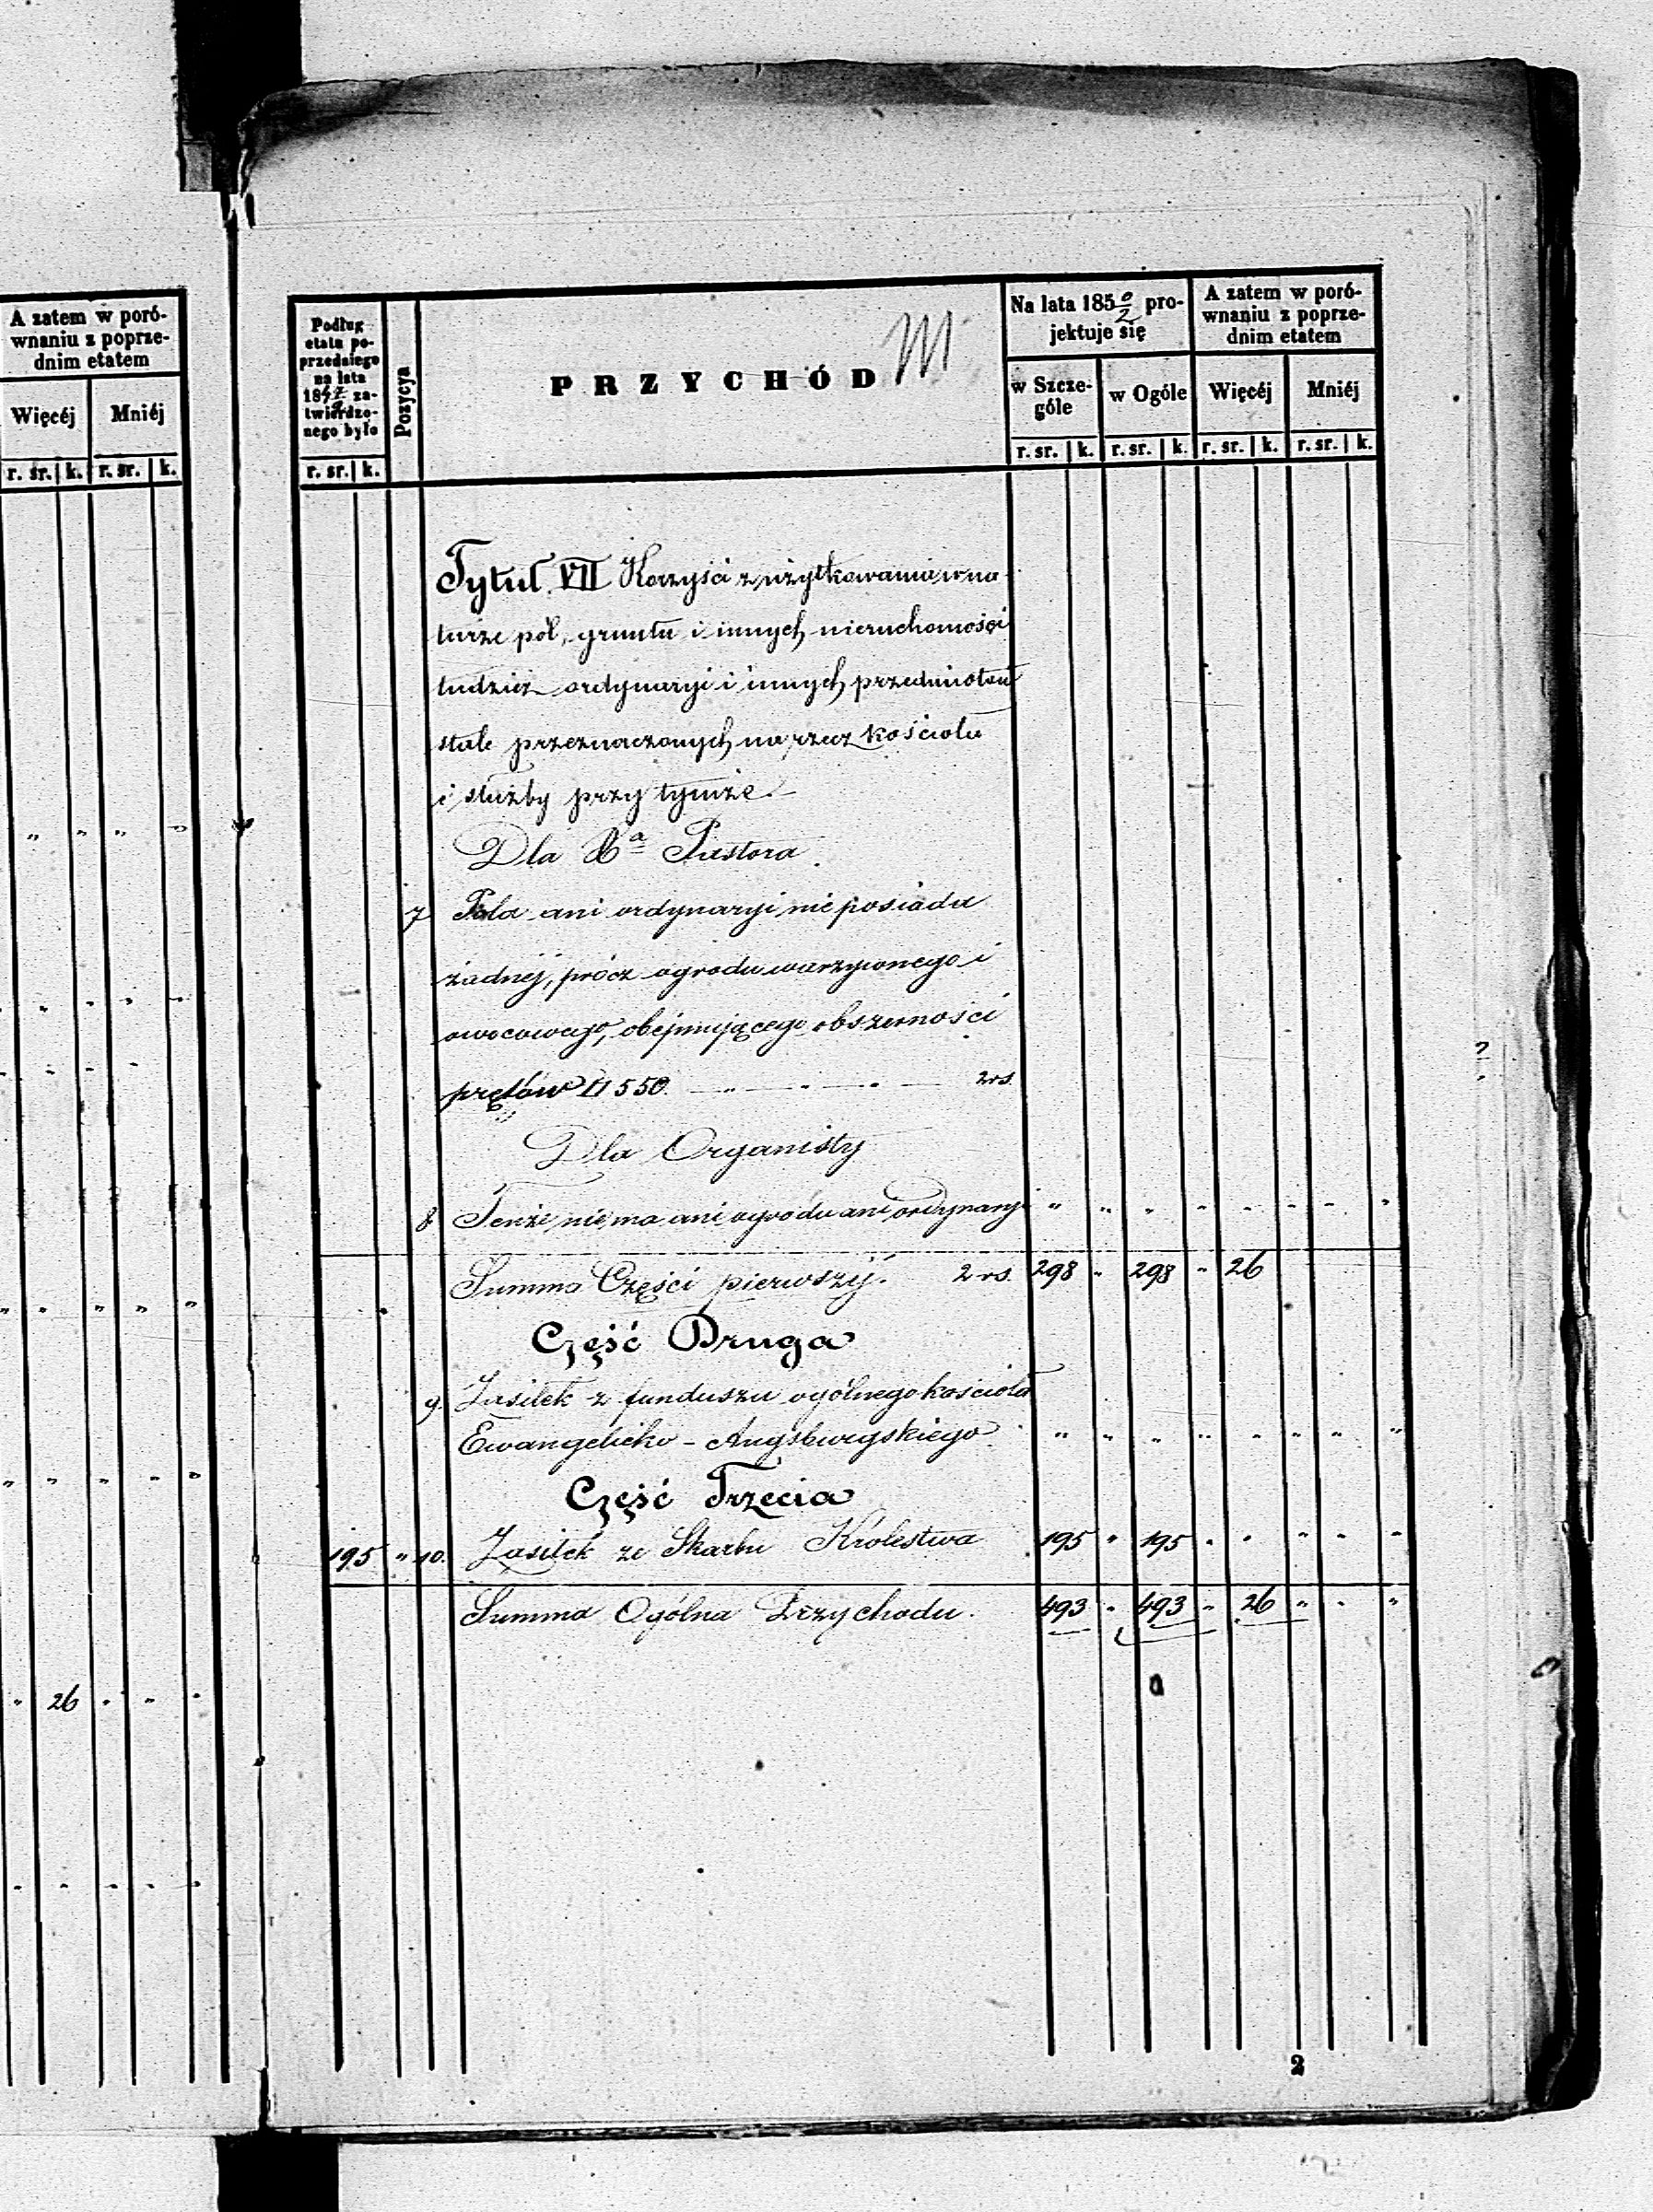 A zatem w poró-
wnaniu z poprze-
dnim etatem
Więcéj Mniéj
r. sr. k. r. sr. k.
26
Podług
etatu po-
przedniego
na lata
184 7/9 za-
twierdzo-
nego było
r. sr. k.
Pozycya
PRZYCHÓD
Na lata 185 0/2 pro-
jektuje się
w Szcze-
góle
w Ogóle
r. sr. k. r. sr. k.
A zatem w poró-
wnaniu z poprze-
dnim etatem
Więcéj Mniéj
r. sr. k. r. sr. k.
Tytuł VII Korzyści z użytkowania w na-
turze pól, gruntu i innych nieruchomości
tudzież ordynaryi i innych przedmiotów
stale przeznaczonych na rzecz kościoła
i służby przy tymże.
Dla Xa Pastora.
7 Pola ani ordynaryi nie posiada
żadnéj, prócz ogrodu warzywnego i
owocowego, obejmującego obszerności
prętów □ 550. " " " rs.
Dla Organisty
8 Tenże nie ma ani ogrodu ani ordynaryi " " " " " " " "
Summa Części pierwszéj. rs. 298 " 298 " 26
Część Druga
9. Zasiłek z funduszu ogólnego kościoła
Ewangelicko-Augsburgskiego " " " " " " " "
Część Trzecia
195 " 10. Zasiłek ze Skarbu Królestwa 195 " 195 " " " " "
Summa Ogólna Przychodu. 493 " 493 " 26 " " "
2